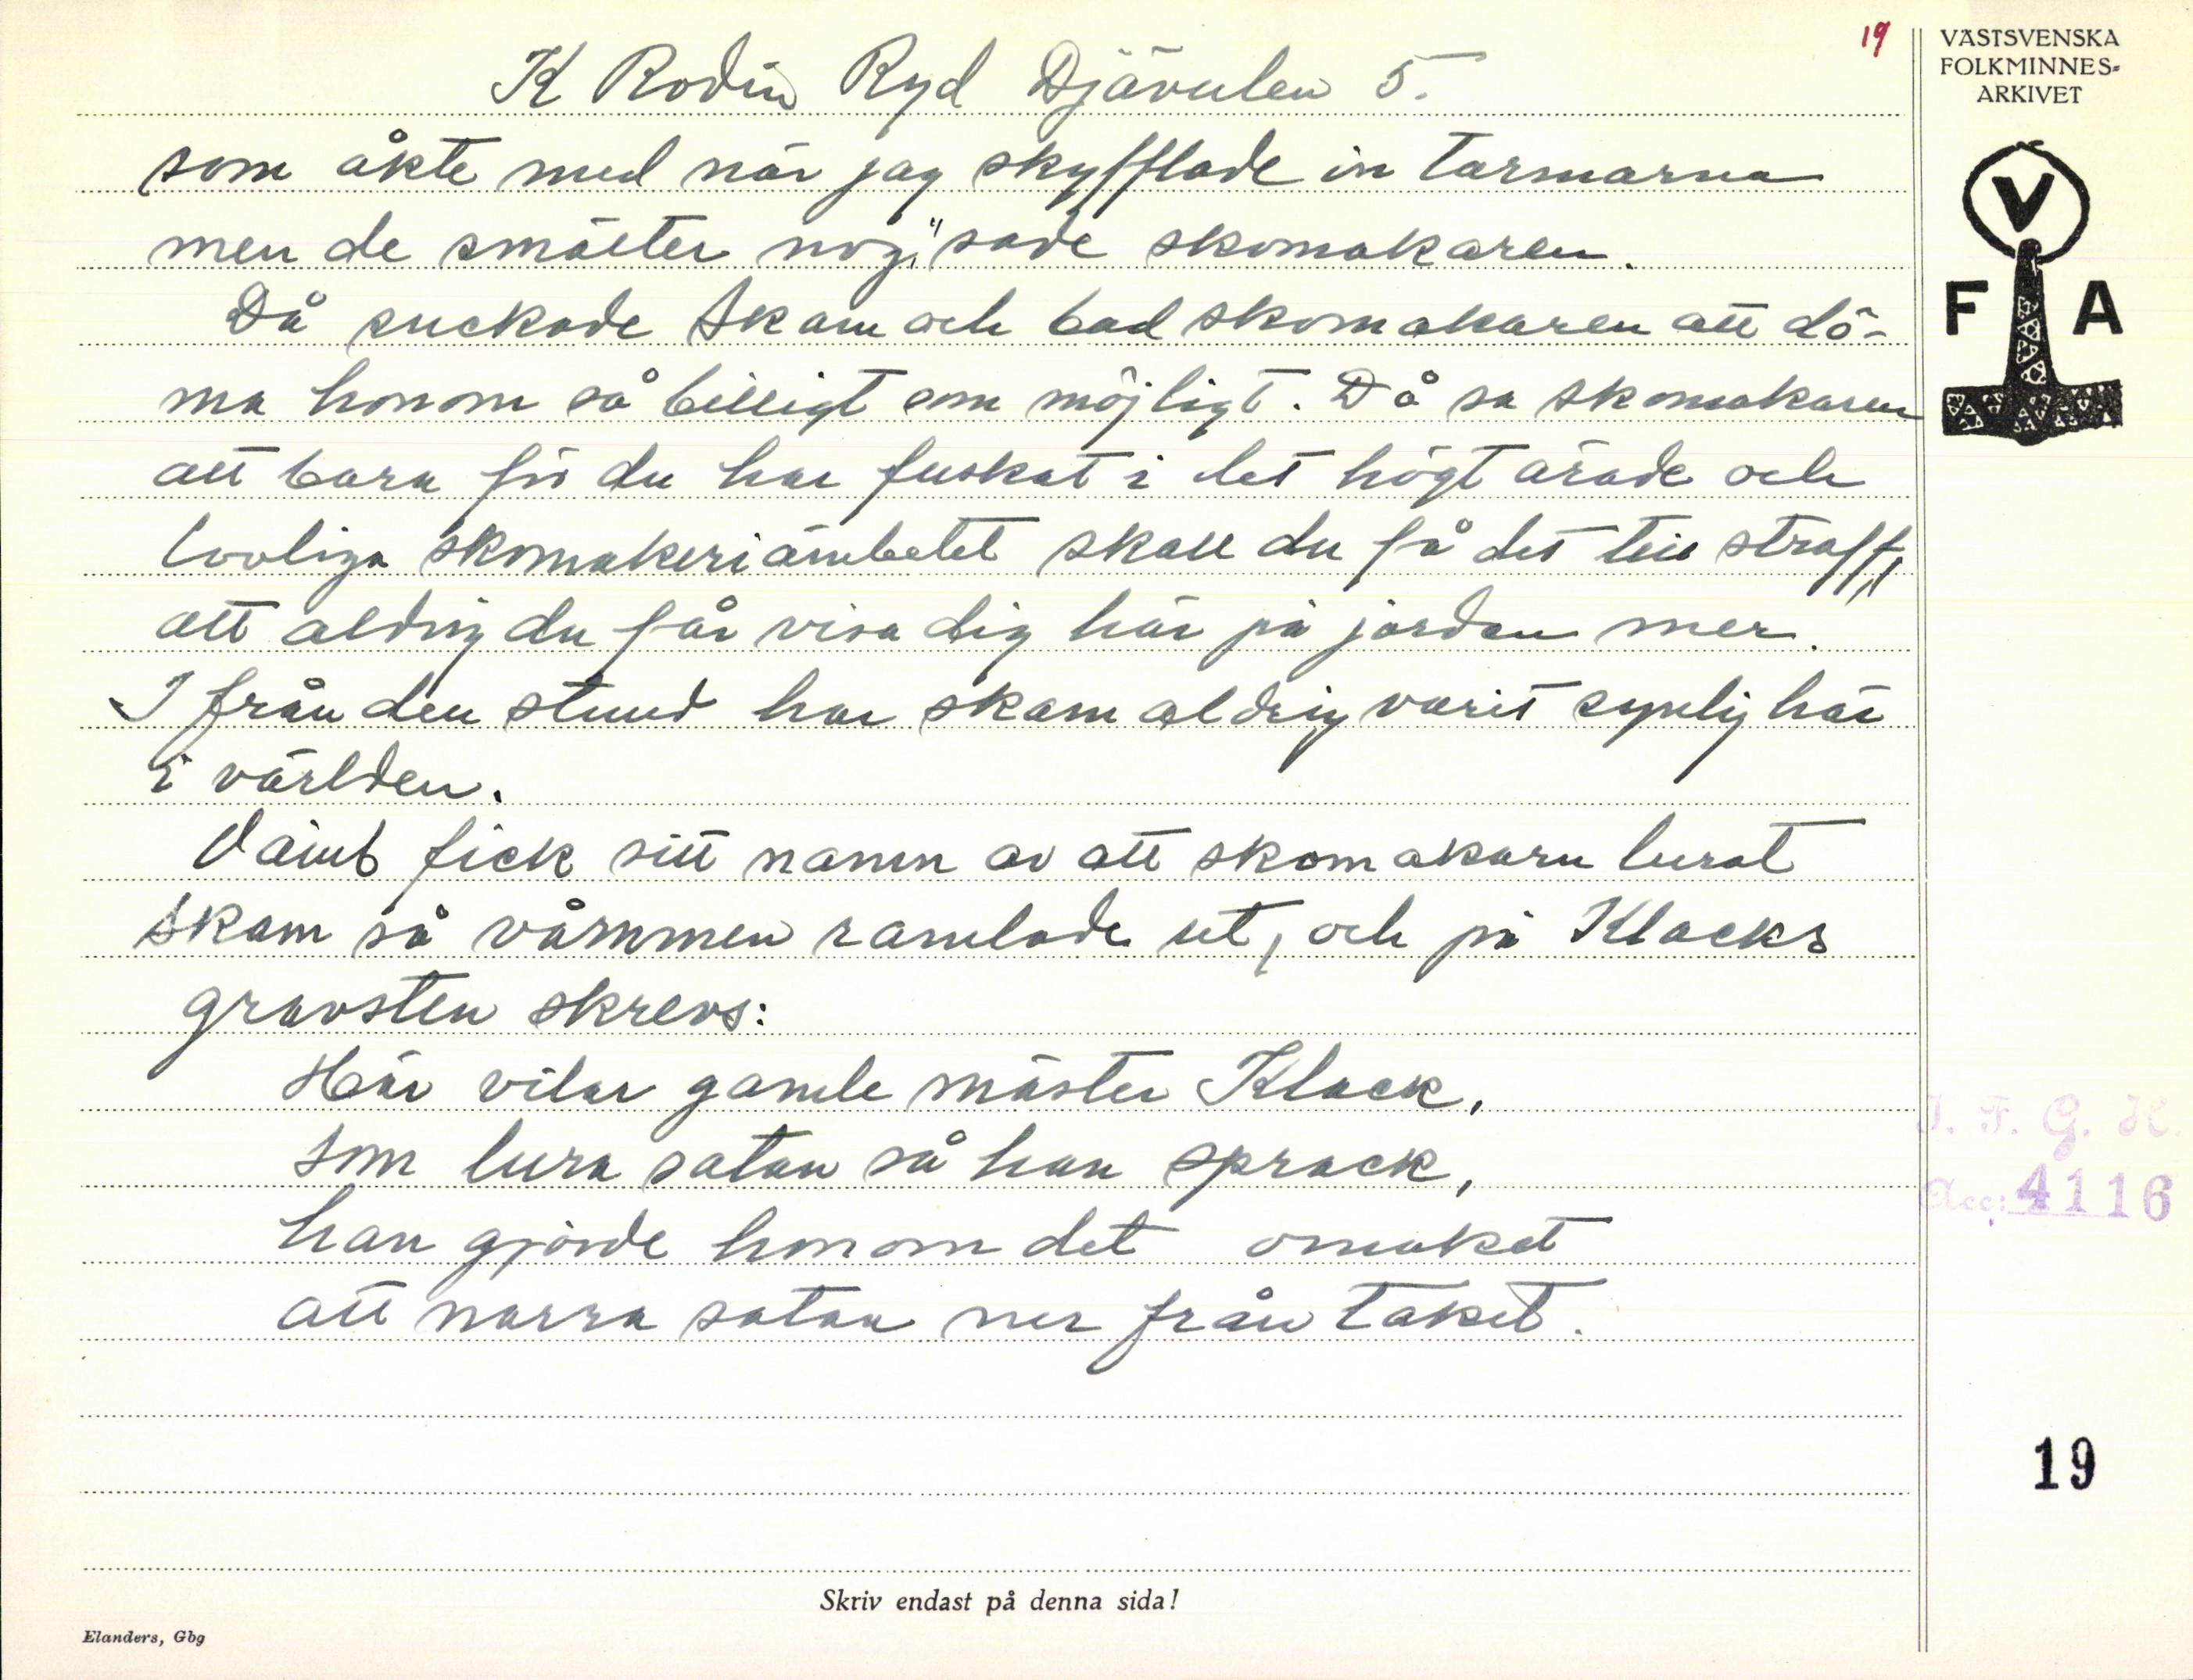 K Rodin Ryd Djävulen 5.
19
VÄSTSVENSKA
FOLKMINNES-
ARKIVET
V
F A
som åkte med när jag skyfflade in tarmarna
men de smälter nog," sade skomakaren.
Då suckade Skam och bad skomakaren att dö-
ma honom så billigt som möjligt. Då sa skomakaren
att bara för du har fuskat i det högt ärade och
lovliga skomakeriämbetet skall du få det till straff,
att aldrig du får visa dig här på jorden mer.
I från den stund har skam aldrig varit synlig här
i världen.
Våmb fick sitt namn av att skomakarn lurat
Skam så våmmen ramlade ut, och på Klacks
gravsten skrevs:
Här vilar gamle mäster Klack,
som lura satan så han sprack,
han gjorde honom det omaket
att narra satan ner från taket.
I. F. G. H.
Acc: 4116
19
Skriv endast på denna sida!
Elanders, Gbg